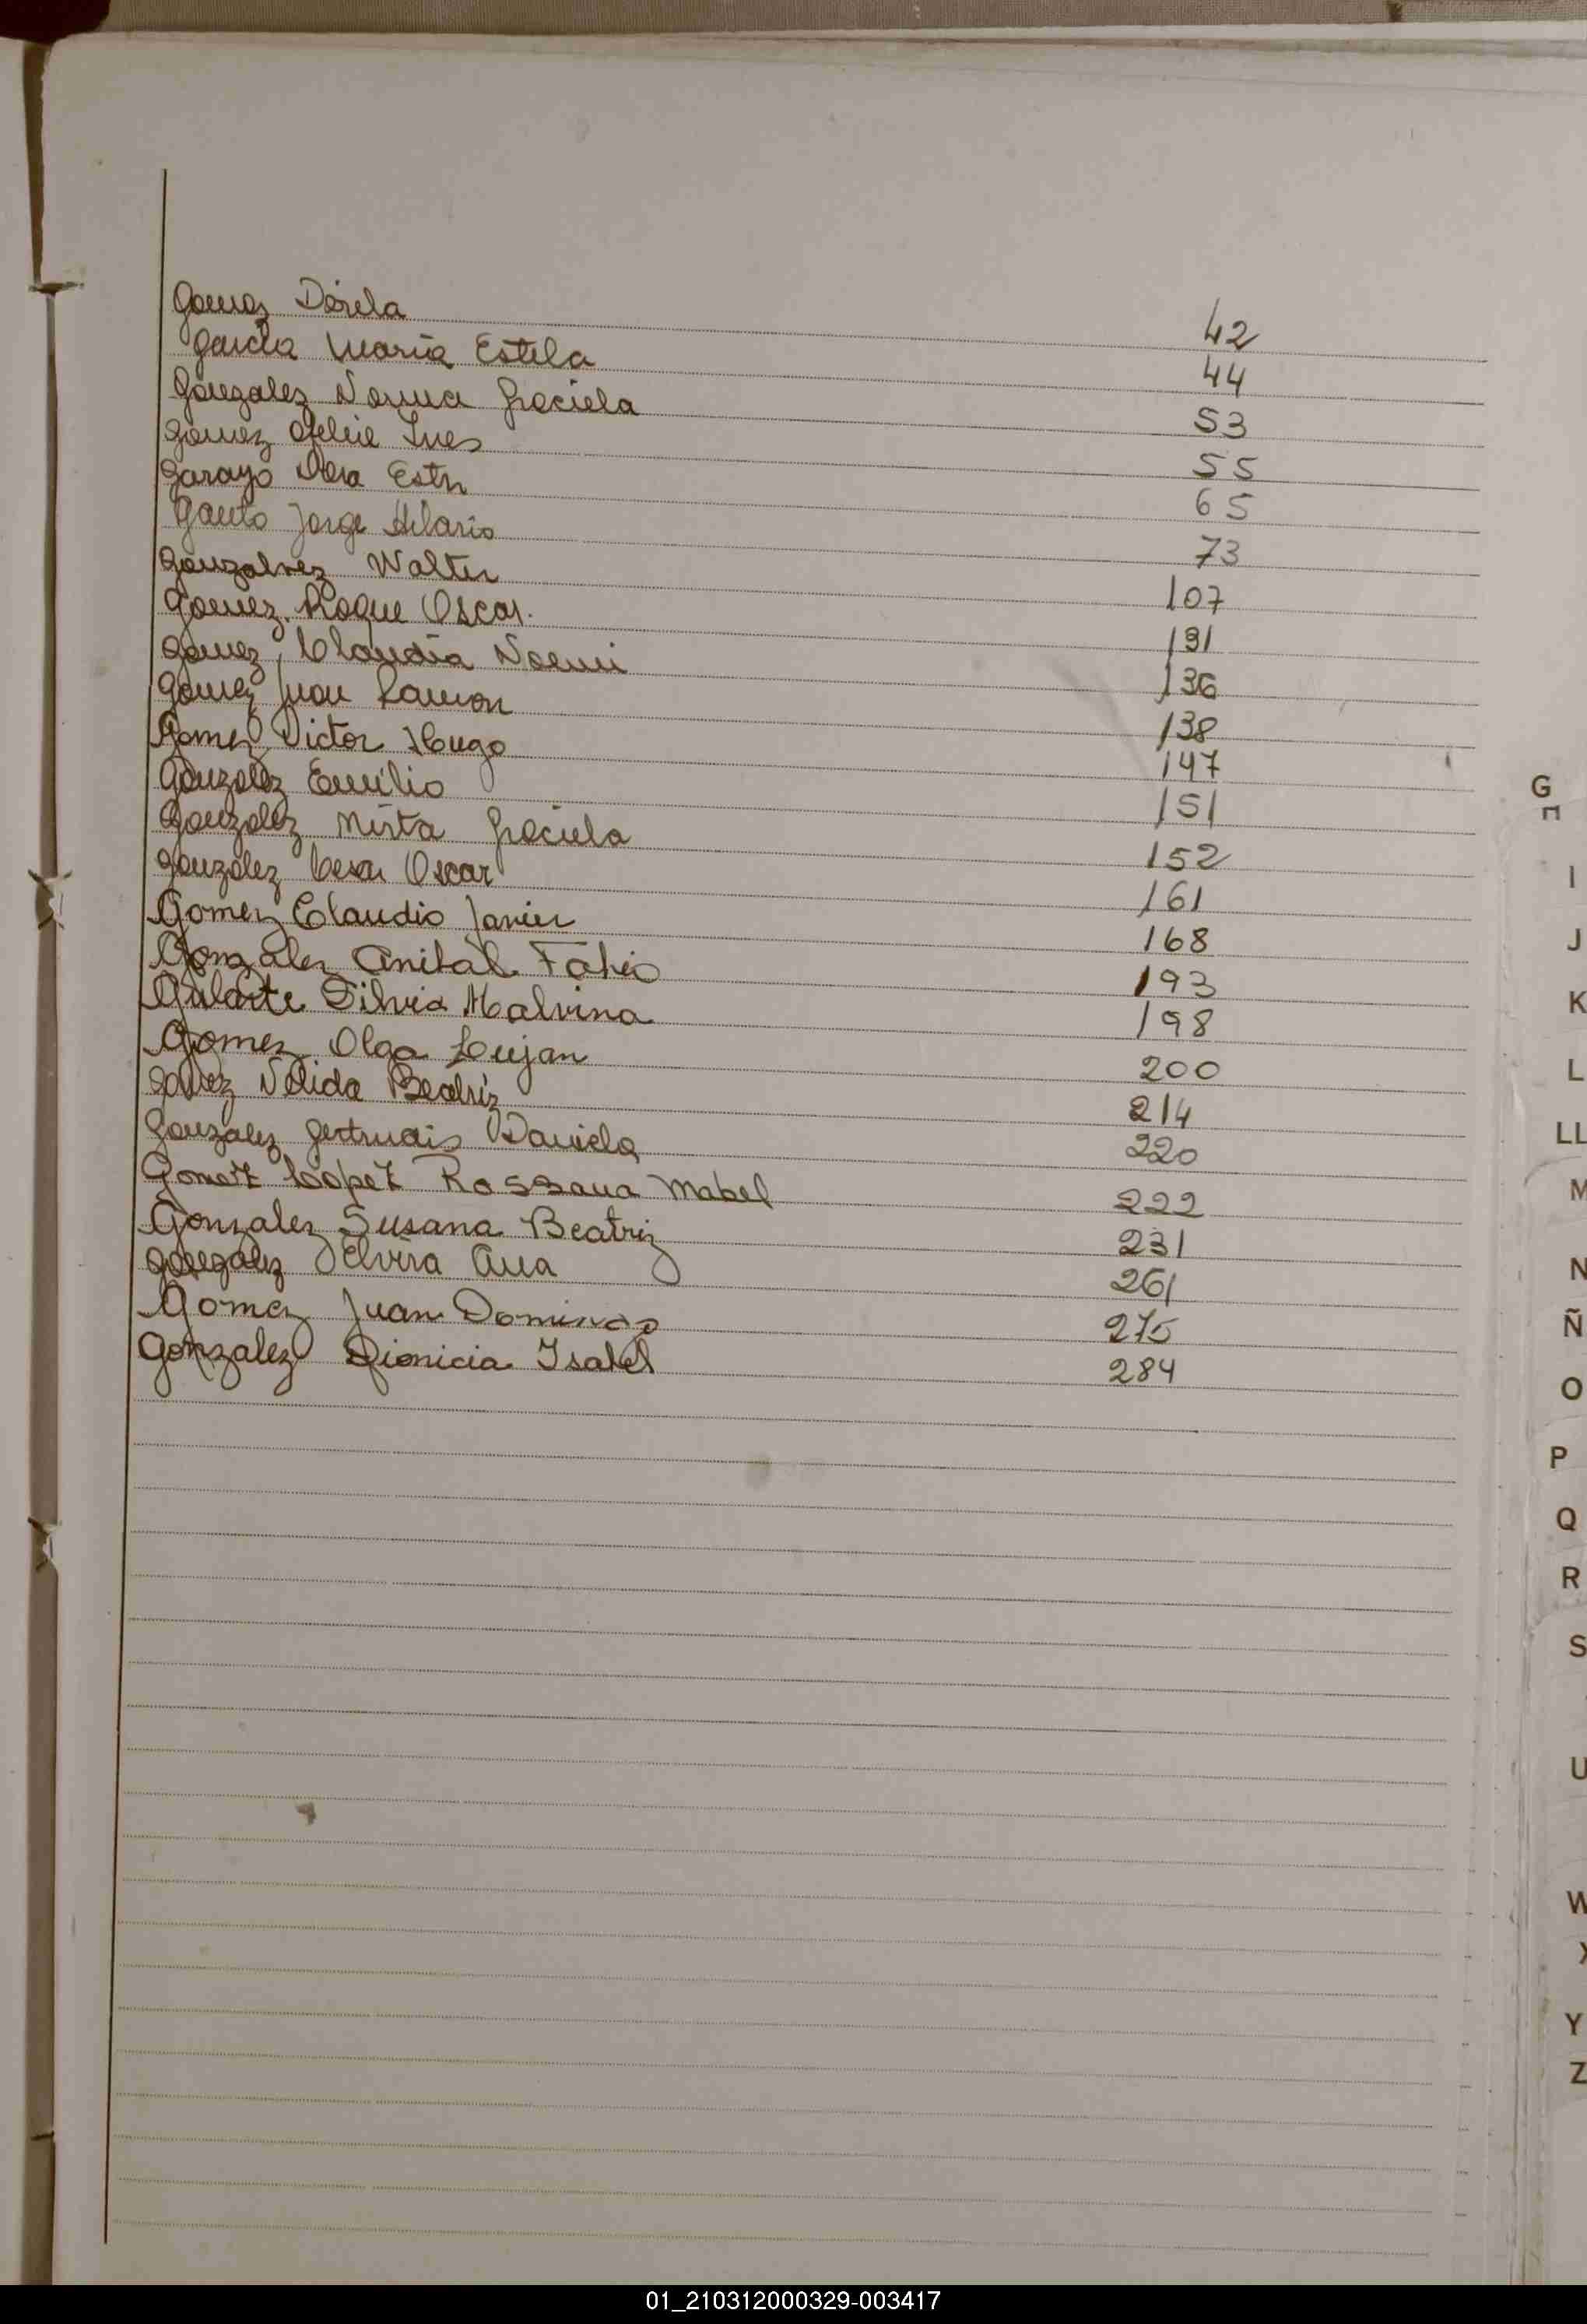 Gomez Dorila 42
Garcia Maria Estela 44
Gonzalez Norma Graciela 53
Gomez Ofelia Ines 55
Garayo Estr 65
Gauto Jorge Hilario 73
Gonzalvez Walter 107
Gomez Roque Oscar. 131
Gomez, Claudia Noemi 136
Gomez Juan Ramon 138
Gomez Victor Hugo 147
Gonzalez Emilio 151
Gonzalez Mirta Graciela 152
Gonzalez Cesar Oscar 161
Gomez Claudio Javier 168
Gonzalez Anibal Fabio 193
Gularte Silvia Malvina 198
Gomez Olga Lujan 200
Nelida Beatriz 214
Gonzalez Gertrudis Daniela 220
Gomez Lopez Rossana Mabel 222
Gonzalez Susana Beatriz 231
Gonzalez Elvira Ana 261
Gomez Juan Domingo 275
Gonzalez Dionicia Isabel 284
G
I
J
K
L
LL
M
N
Ñ
O
P
Q
R
S
U
W
Y
Z
01_210312000329-003417